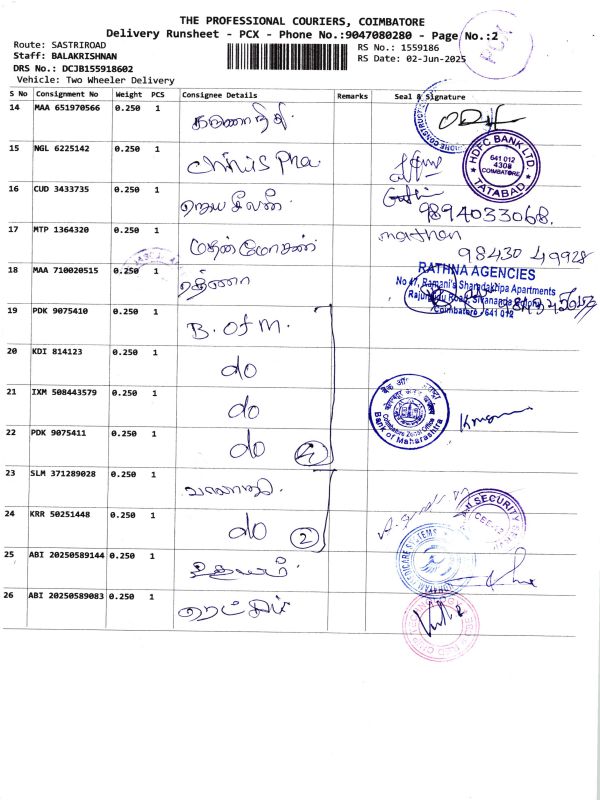 THE PROFESSIONAL COURIERS, COIMBATORE
Delivery Runsheet - PCX - Phone No.:9047080280 - Page No.:2
PCX
Route: SASTRIROAD
RS No.: 1559186
Staff: BALAKRISHNAN
RS Date: 02-Jun-2025
DRS No.: DCJB155918602
Vehicle: Two Wheeler Delivery
S No Consignment No Weight PCS Consignee Details Remarks Seal & Signature
14 MAA 651970566 0.250 1
15 NGL 6225142 0.250 1
HDFC BANK LTD.
641 012
4308
COIMBATORE
TATABAD
16 CUD 3433735 0.250 1
9894033068.
17 MTP 1364320 0.250 1 மதன்மோகன் mathan
98430 49928
18 MAA 710020515 0.250 1 ரத்னா
RATHNA AGENCIES
No 47, Ramani's Sharadakripa Apartments
Coimbatore 641 012
19 PDK 9075410 0.250 1 B. of M.
20 KDI 814123 0.250 1 do
21 IXM 508443579 0.250 1 do
Coimbatore Zonal Office
Bank of Maharashtra
22 PDK 9075411 0.250 1 do 4
23 SLM 371289028 0.250 1
24 KRR 50251448 0.250 1 do 2
SECURITY
25 ABI 20250589144 0.250 1
26 ABI 20250589083 0.250 1